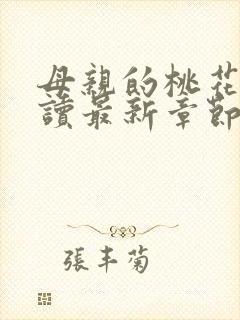 母親的桃花
讀最新章節
張丰菊